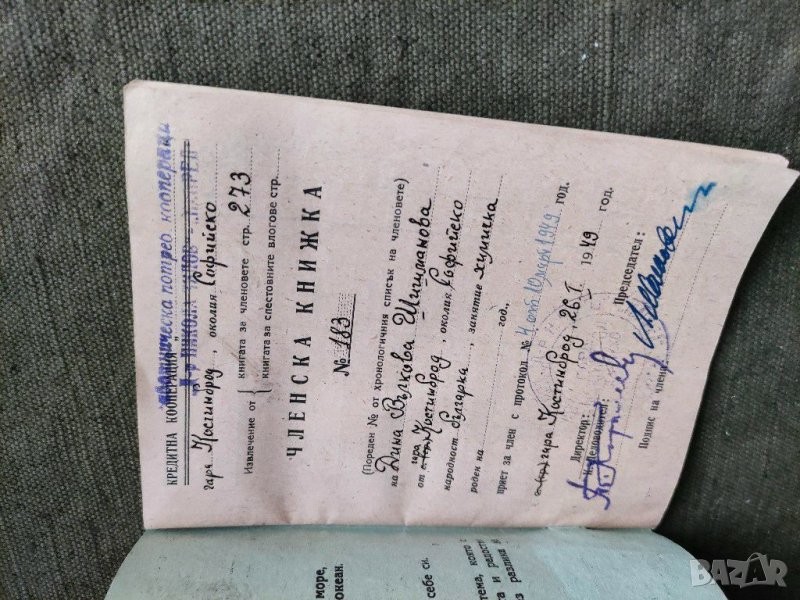 КРЕДИТНА КООПЕРАЦИЯ "
потреб кооперация
гара Костинброд, околия Софийско
Извлечение от { книгата за членовете стр. 273
книгата за спестовните влогове стр.
ЧЛЕНСКА КНИЖКА
№ 183
(Пореден № от хронологичния списък на членовете)
на Дина Вълкова Шишманова
от гара Костинброд, околия Софийско
народност българка, занятие
роден на год.,
приет за член с протокол № 1949 год.
гара Костинброд, 26.I. 1949 год.
Директор: Председател:
Деловодител:
Подпис на члена:
море,
океан.
себе си.
тема, които
та и радост
разлика
BAZAR